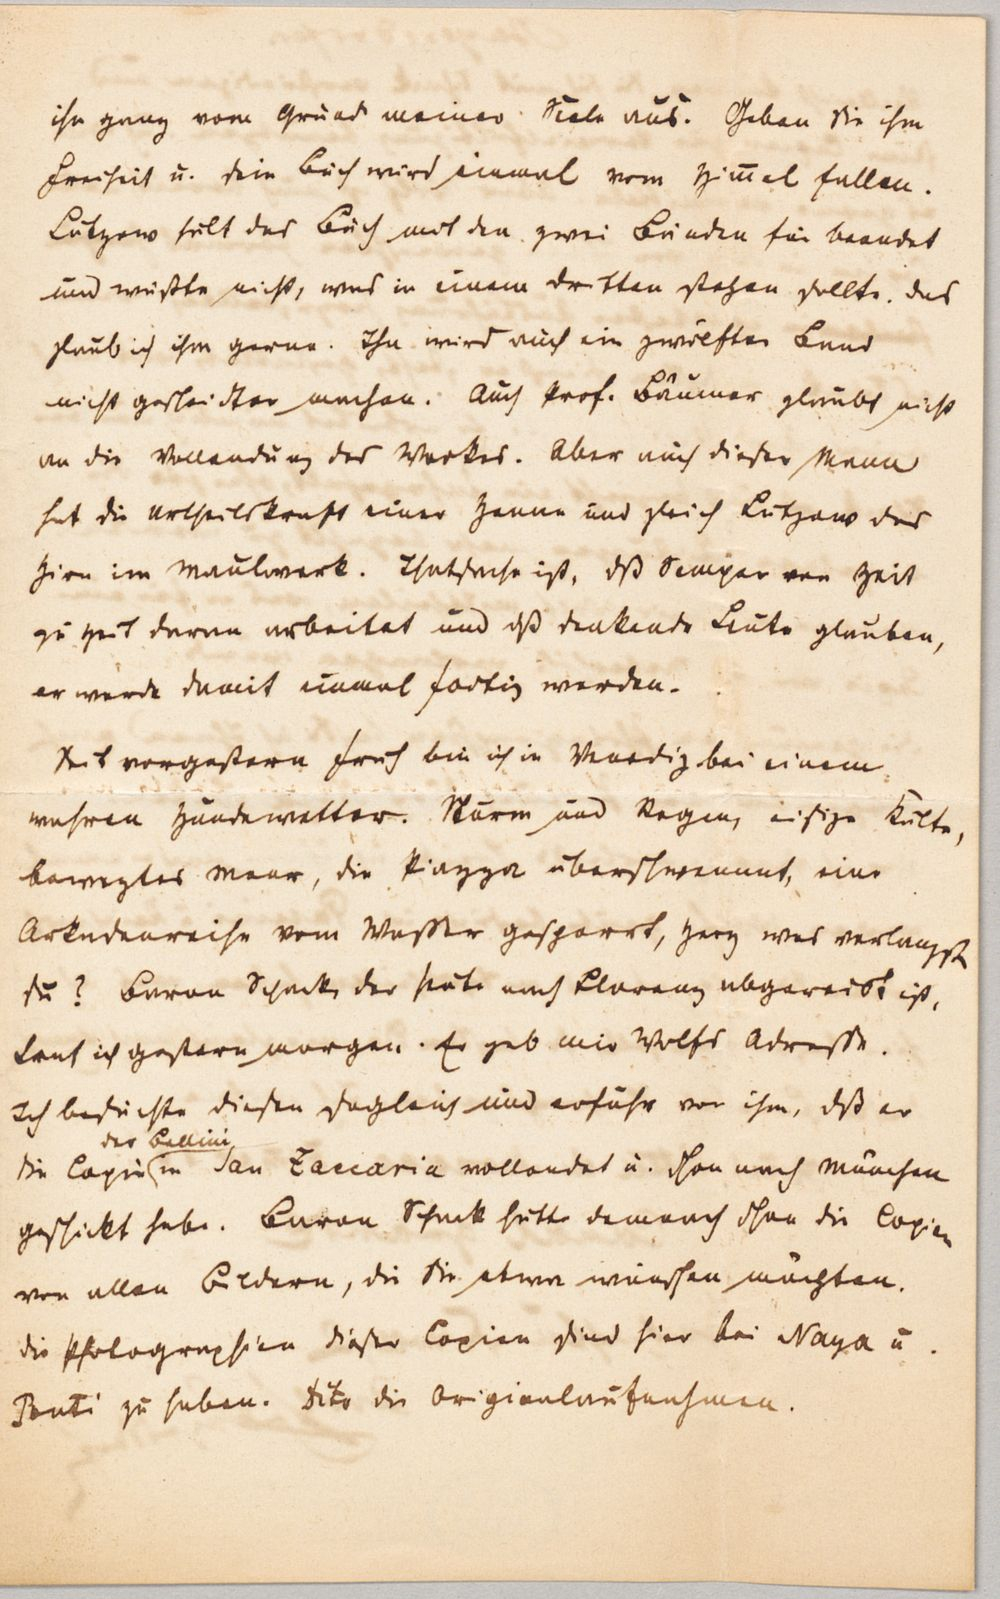 ihn ganz vom Grund meiner Seele aus. Geben Sie ihm
Freiheit u. sein Buch wird einmal vom Himmel fallen.
Lützow hält das Buch mit den zwei Bänden für beendet
und wüßte nicht, was in einem dritten stehen sollte. Das
glaub ich ihm gerne. Ihn wird auch ein zwölfter Band
nicht gescheidter machen. Auch Prof. Bäumer glaubt nicht
an die Vollendung des Werkes. Aber auch dieser Mann
hat die Urtheilskraft einer Henne und gleich Lützow das
Hirn im Maulwerk. Thatsache ist, dß Semper von Zeit
zu Zeit daran arbeitet und dß denkende Leute glauben,
er werde damit einmal fertig werden.
Seit vorgestern früh bin ich in Venedig bei einem
wahren Hundewetter. Sturm und Regen, eisige Kälte,
bewegtes Meer, die Piazza überschwemmt, eine
Arkadenreihe vom Wasser gesperrt, Herz was verlangst
du? Baron Schack, der heute nach Florenz abgereist ist,
traf ich gestern morgen. Er gab mir Wolfs Adresse.
Ich besuchte diesen sogleich und erfuhr von ihm, dß er
die Copie des Bellini in San Zaccaria vollendet u. schon nach München
geschickt habe. Baron Schack hätte demnach schon die Copien
von allen Bildern, die Sie etwa wünschen möchten.
Die Photographien dieser Copien sind hier bei Naya u.
Ponti zu haben. Dito die Originalaufnahmen.